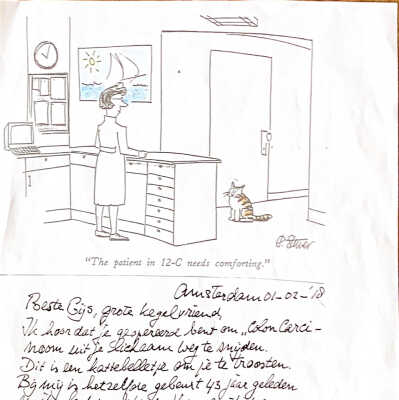 P. Steiner
"The patient in 12-C needs comforting."
Amsterdam 01-02-'18
Beste Gijs, grote kegelvriend,
Ik hoor dat je geopereerd bent om „Colon Carci-
noom uit je lichaam weg te snijden.
Dit is een kattebelletje om je te troosten.
Bij mij is hetzelfde gebeurt 43 jaar geleden